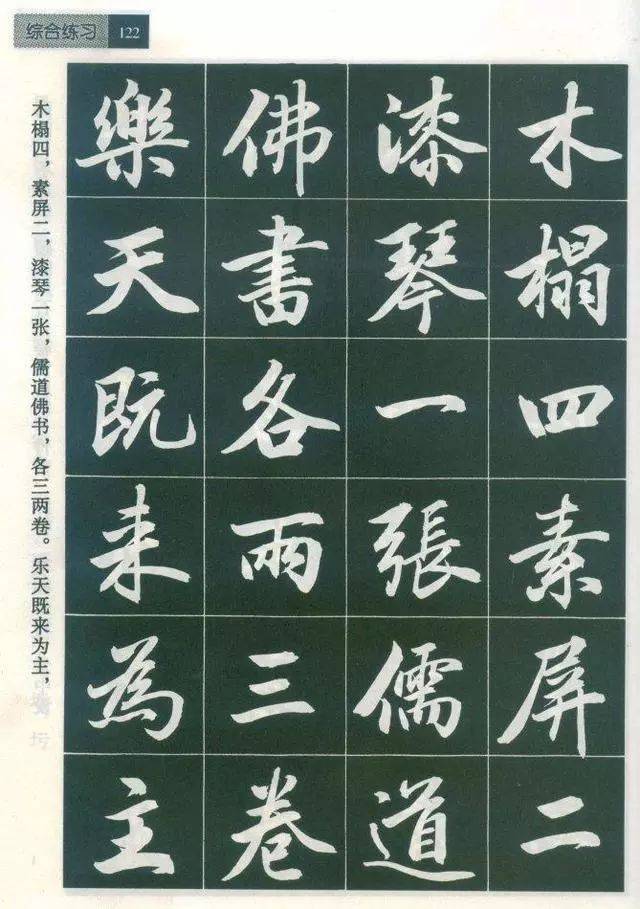 综合练习 122
木榻四素屏二
漆琴一張儒道
佛書各兩三卷
樂天既来為主
木榻四，素屏二，漆琴一张，儒道佛书，各三两卷。乐天既来为主，